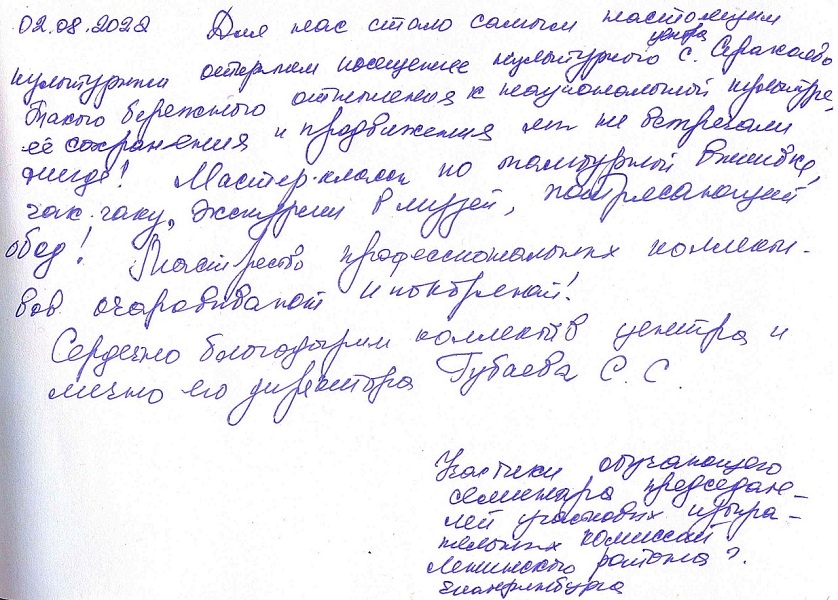 02.08.2022 Для нас стало самым настоящим
культурным остервлем посещение культурного центра с. Серакаево
Такого бережного отношения к национальной культуре,
её сохранения и продвижения мы не встречали
нигде! Мастер-класс по тамбурной вышивке,
чак-чаку, экскурсии в музей, потрясающий
обед! Мастерство профессиональных коллекти-
вов очаровывают и покоряют!
Сердечно благодарим коллектив центра и
лично его директора Губаева С. С.
Участники обучающего
семинара председате-
лей участковых избира-
тельных комиссий
Ленинского района г.
Екатеринбурга